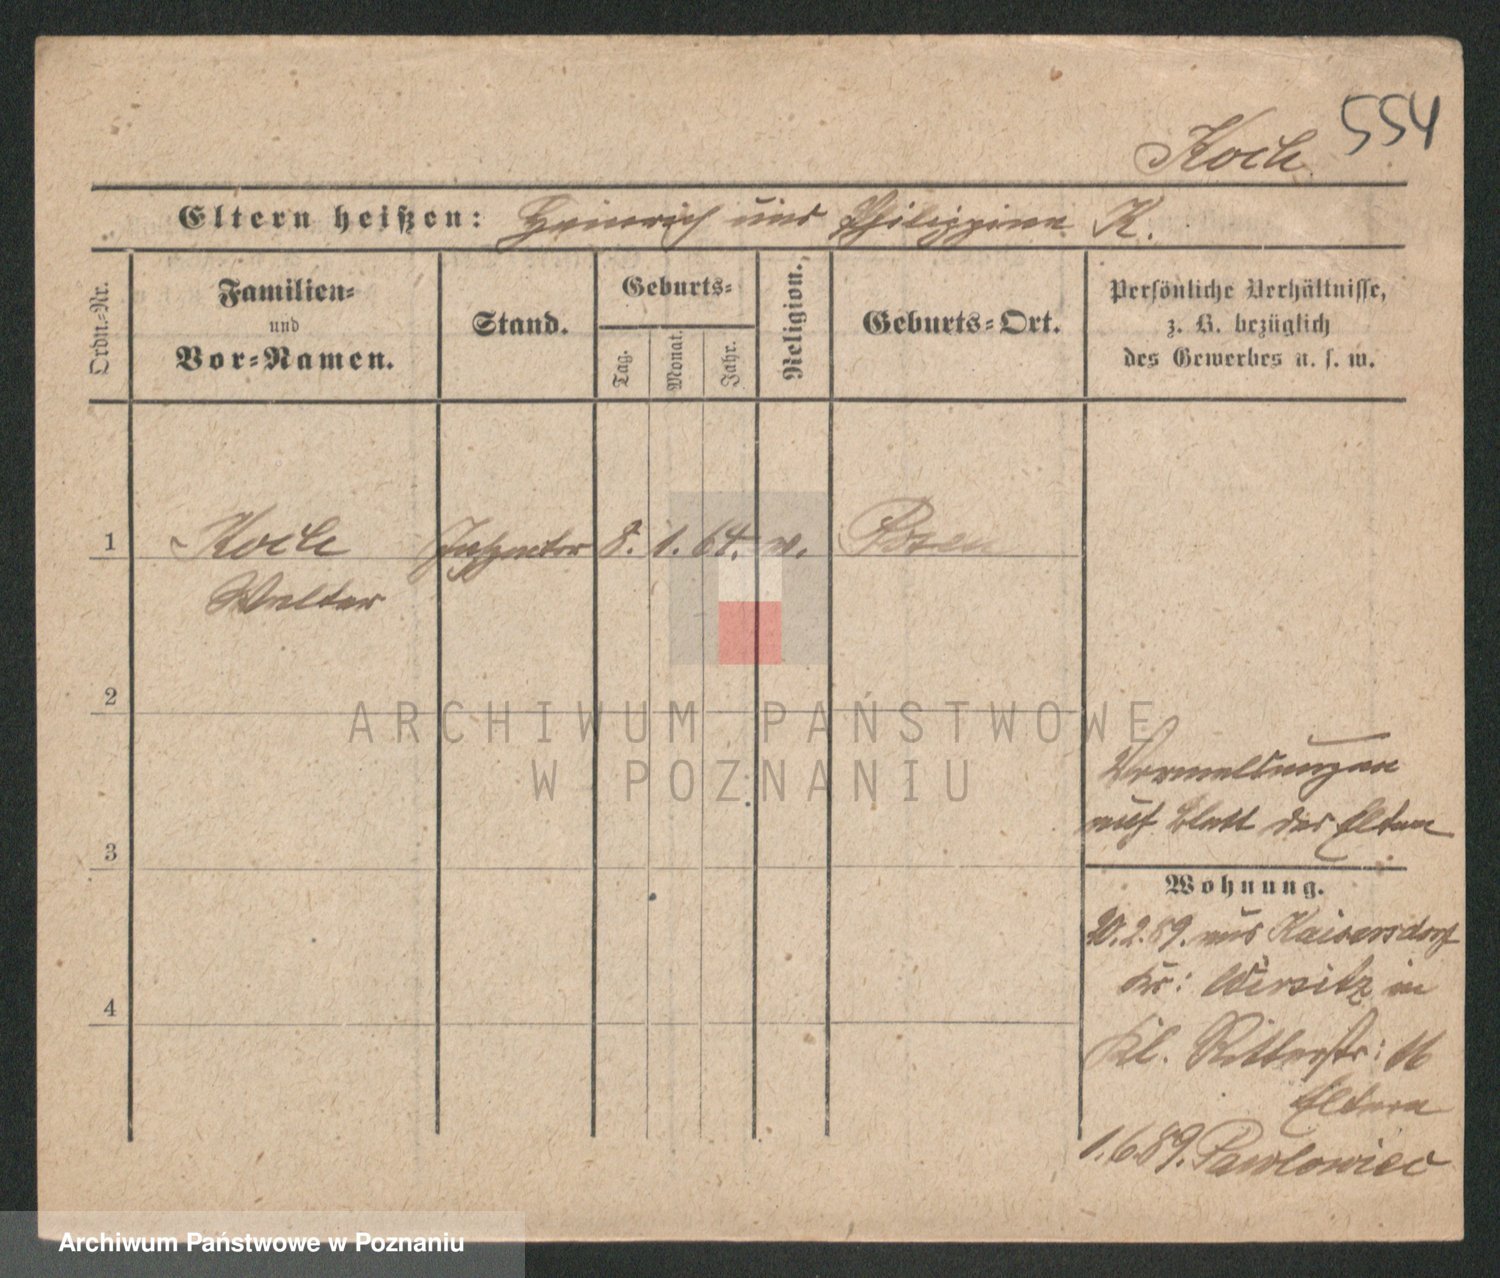 554
Koch
Eltern heißen: Heinrich und Philippine K.
Ordn.-Nr.
Familien-
und
Vor-Namen.
Stand.
Geburts-
Tag.
Monat.
Jahr.
Religion.
Geburts-Ort.
Persönliche Verhältnisse,
z. B. bezüglich
des Gewerbes u. s. w.
1
Koch
Walter
Inspector
8. 1. 64.
Posen
2
ARCHIWUM PAŃSTWOWE
W POZNANIU
auf Blatt der Eltern
3
Wohnung.
20.2.89. aus Kaisersdorf
Kr: Wirsitz in
4
Kl. Ritterstr: 16
Eltern
1.6.89. Pawlowiec
Archiwum Państwowe w Poznaniu